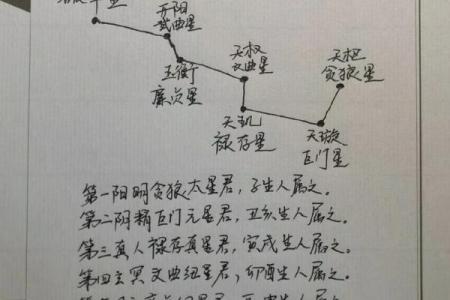 开阳
武曲星
玉衡
廉贞星
天权
文曲星
天枢
贪狼星
天玑
禄存星
天璇
巨门星
第一阳明贪狼太星君,子生人属之。
第二阴精巨门元星君,丑亥生人属之。
第三真人禄存真星君,寅戌生人属之。
第四玄冥文曲纽星君,卯酉生人属之。